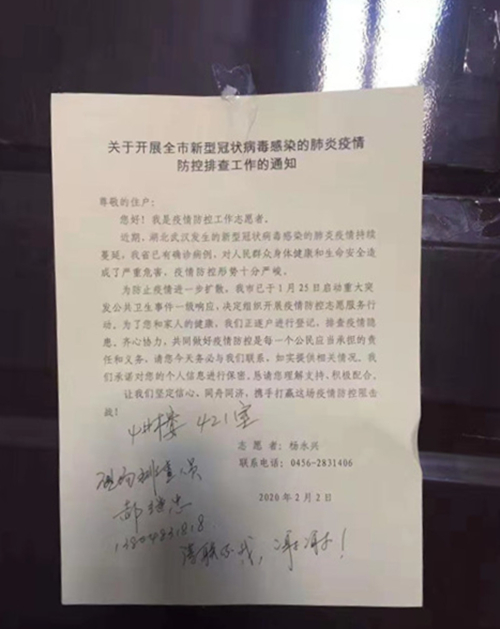 关于开展全市新型冠状病毒感染的肺炎疫情
防控排查工作的通知
尊敬的住户：
您好！我是疫情防控工作志愿者。
近期，湖北武汉发生的新型冠状病毒感染的肺炎疫情持续
蔓延，我省已有确诊病例，对人民群众身体健康和生命安全造
成了严重危害，疫情防控形势十分严峻。
为防止疫情进一步扩散，我市已于1月25日启动重大
突发公共卫生事件一级响应，决定组织开展疫情防控志愿服务行
动。为了您和家人的健康，我们正逐户进行登记，排查疫情隐
患。齐心协力，共同做好疫情防控是每一个公民应当承担的责
任和义务，请您今天务必与我们联系，如实提供相关情况。我
们承诺对您的个人信息进行保密，恳请您理解支持、积极配合。
让我们坚定信心，同舟同济，携手打赢这场疫情防控阻击
战！
4#楼 421室
志愿者：杨永兴
联系电话：0456-2831406
员
郝 忠
2020年2月2日
请联系我，谢谢！